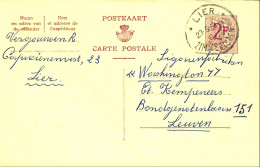 POSTKAART
CARTE POSTALE
Naam en adres van de afzender
Nom et adresse de l'expéditeur
Vergouwen R.
Capucienenvest, 23
Lier
LIER
2F
Washington 47
Et. Kempeneers
Bondgenotenlaan 151
Leuven